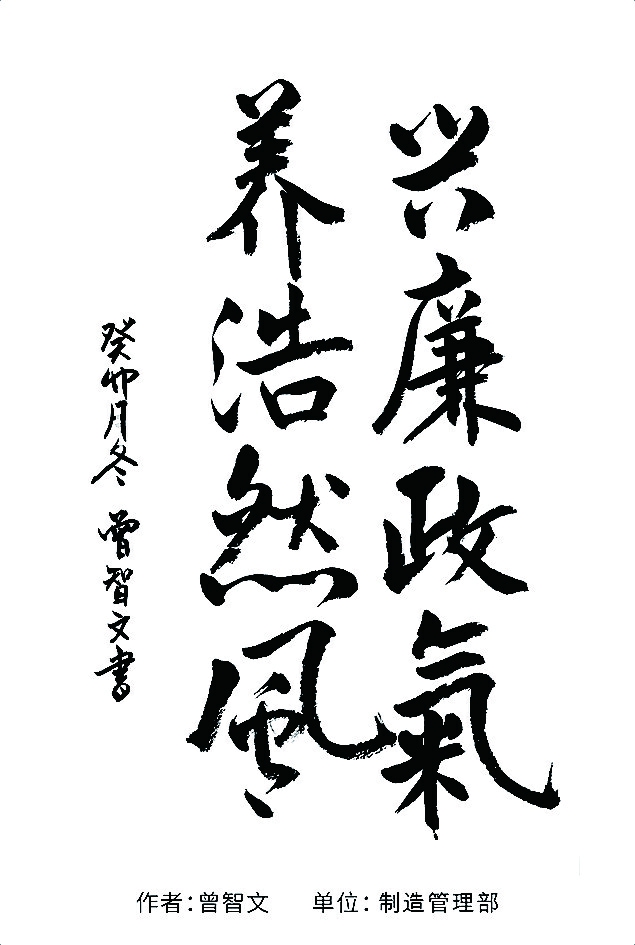 兴廉政氣
养浩然風
癸卯月冬 曾智文書
作者:曾智文 单位:制造管理部